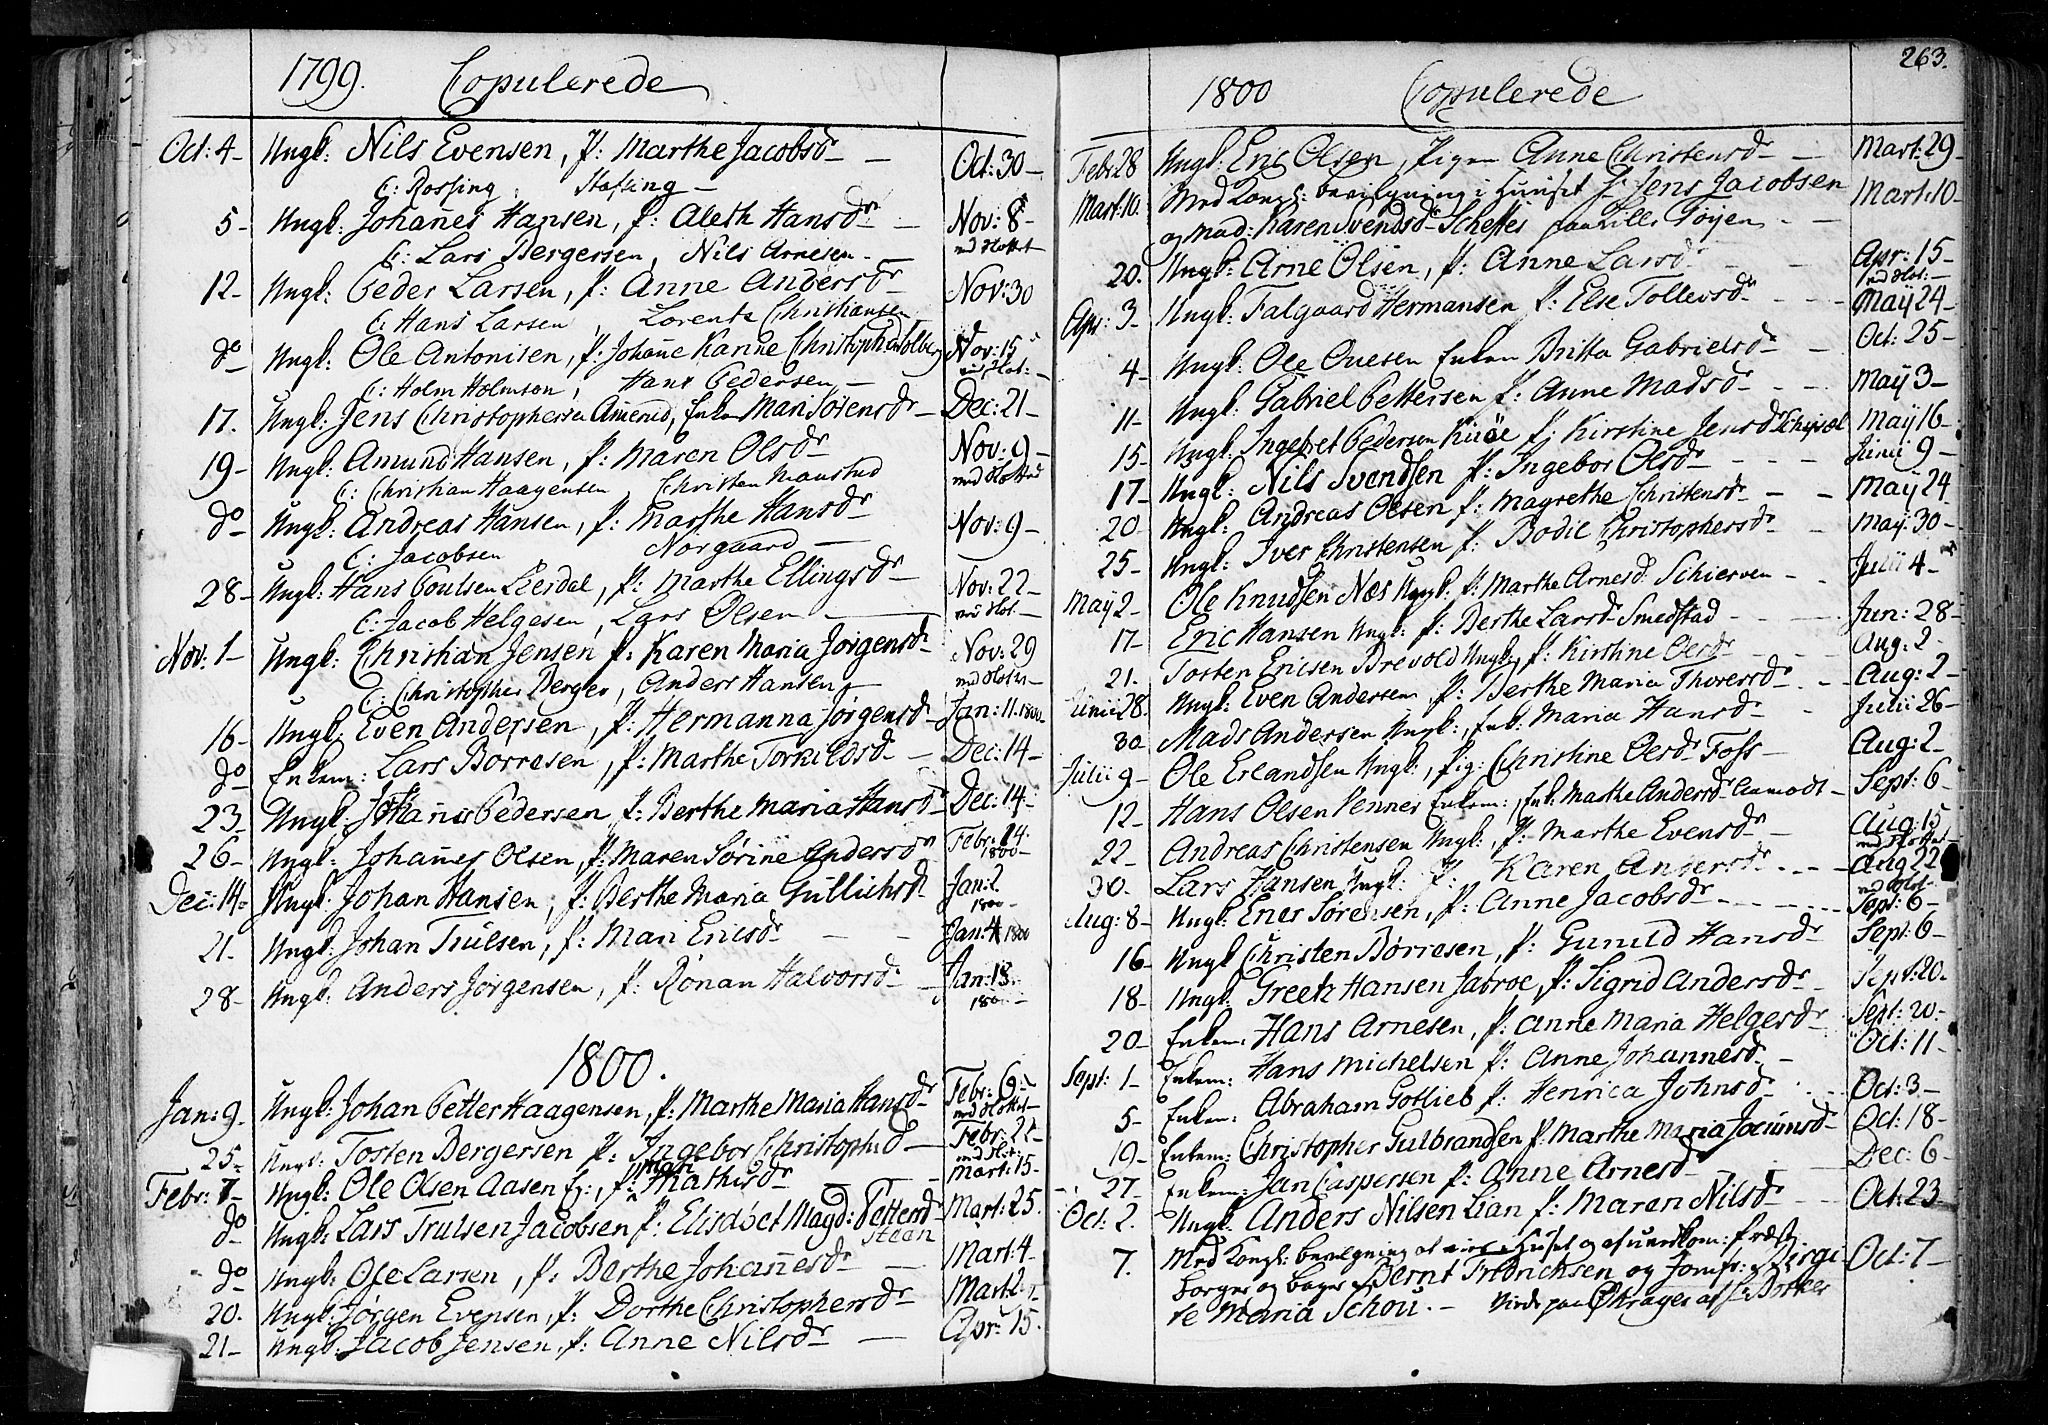 1799. Copulerede
Oct: 4- Ungk: Nils Evensen, P: Marthe Jacobsdr - Oct: 30-
C: Rossing, Stafsing -
5- Ungk: Johañes Hansen, P: Aleth Hansdr - Nov: 8-
C: Lars Bergersen, Nils Arnesen - med Slottet
12- Ungk: Peder Larsen, P: Anne Andersdr - Nov: 30
C: Hans Larsen, Lorents Christiansen
do Ungk: Ole Antonisen, P: Johañe Karine Christophersd Nov: 15
C: Holm Holmson, Hans Pedersen -
17. Ungk: Jens Christophersen, Enken Mari Sörensdr - Dec: 21-
19- Ungk: Amund Hansen, P: Maren Olsdr Nov: 9-
C: Christian Haagensen Christen Maustad
do Ungk: Andreas Hansen, P: Marthe Hansdr Nov: 9-
C: Jacobsen Norgaard -
28- Ungk: Hans Poulsen Leerdal, P: Marthe Ellingsdr Nov: 22-
C: Jacob Helgesen, Lars Olsen -
Nov: 1- Ungk: Christian Jensen P: Karen Maria Jörgensdr Nov: 29
C: Christopher Berger, Anders Hansen -
16- Ungk: Even Andersen, P: Hermanna Jörgensdr Jan: 11. 1800-
do Enkem: Lars Borresen, P: Marthe Torkildsdr - Dec: 14-
23- Ungk: Johañes Pedersen P: Berthe Maria Hansdr Dec: 14-
26- Ungk: Johañes Olsen, P: Maren Sörine Andersdr Febr: 14. 1800-
Dec: 14- Ungk: Johan Hansen, P: Berthe Maria Gullichsdr Jan: 2. 1800-
21- Ungk: Johan Trulsen, P: Mari Ericsdr - Jan: 4. 1800
28- Ungk: Anders Jörgensen, P: Rönau Halvorsdr - Jan: 18. 1800
1800.
Jan: 9- Ungk: Johan Petter Haagensen, P: Marthe Maria Hansdr Febr: 6- med Slottet
25- Ungk: Tosten Bergersen P: Ingebor Christophersd - Febr: 22-
Febr: 7- Ungk: Ole Olsen Aasen, P: Mari Mathisdr - Mart: 15-
do Ungk: Lars Trulsen Jacobsen P: Elisabet Magd: Pettersdr Steen Mart: 25.
do Ungk: Ole Larsen, P: Berthe Johañesdr - Mart: 4-
20. Ungk: Jörgen Evensen, P: Dorthe Christophersdr -
21- Ungk: Jacob Jensen, P: Anne Nilsdr - Apr: 15.
263.
1800 Copulerede
Febr: 28 Ungk: Eric Olsen, Pigen Anne Christensdr - Mart: 29-
Mart: 10. Med Kongl: bevilgning i Huuset Jens Jacobsen Mart: 10-
og Mad: Karen Svendsdr Scheftes Töyen -
20. Ungk: Arne Olsen, P: Anne Larsdr - Apr: 15-
Apr: 3- Ungk: Falgaard Hermansen P: Else Tollevsdr - Maÿ 24-
4- Ungk: Ole Ouesen Enken Britta Gabrielsdr - Oct: 25-
11- Ungk: Gabriel Pettersen P: Anne Madsdr - Maÿ 3-
15- Ungk: Ingebret Pedersen P: Kirstine Jensdr Maÿ 16-
17- Ungk: Nils Svendsen P: Ingebor Olsdr - Junii 9-
20- Ungk: Andreas Olsen P: Magrethe Christensdr - Maÿ 24
25- Ungk: Iver Christensen P: Bodil Christophersdr - Maÿ: 30-
Maÿ 2- Ole Knudsen Næs Ungk: P: Marthe Arnesd: Schierven - Julii 4-
17- Eric Hansen Ungk: P: Berthe Larsdr Smedstad - Jun: 28-
21. Tosten Ericsen Brevold Ungk, P: Kirstine Olsdr - Aug: 2-
Junii 28. Ungk: Even Andersen, P: Berthe Maria Thoresdr - Aug: 2-
30- Mads Andersen Ungk:, Enk: Maria Hansdr - Julii 26-
Julii 9- Ole Erlandsen Ungk:, Pig: Christine Olsdr Foss - Aug: 2-
12- Hans Olsen Venner Enkem:, Enk: Marthe Andersdr Aamodt - Sept: 6-
22- Andreas Christensen Ungk:, P: Marthe Evensdr - Aug: 15 med Slottet
30- Lars Hansen Ungk: P: Karen Andersdr - Aug 22
Aug: 8- Ungk: Ener Sörensen, P: Anne Jacobsdr - Sept: 6-
16- Ungk Christen Börresen, P: Gunild Hansdr - Sept: 6-
18- Ungk: Greek Hansen Jabroe, P: Sigrid Andersdr - Sept: 20-
20- Enkem: Hans Arnesen, P: Anne Maria Helgesdr Sept: 20-
Sept: 1- Enkem: Hans Michelsen P: Anne Johannesdr - Oct: 11-
5- Enkem: Abraham Gotlieb P: Henrica Johnsdr Oct: 3-
19- Enkem: Christopher Gulbrandsen P: Marthe Maria Jocumsdr Oct: 18-
27- Enkem: Jan Caspersen P: Anne Arnesdr - Dec: 6-
Oct: 2. Ungk: Anders Nilsen Lian P: Maren Nilsdr - Oct: 23
7. Med Kongl: bevilgning at vies i Huset og af uvedkom: Præst, Oct: 7-
borger og bager Bernt Fredrichsen og Jomfr: Birgi-
te Maria Schou. - Viede paa Ohrager af